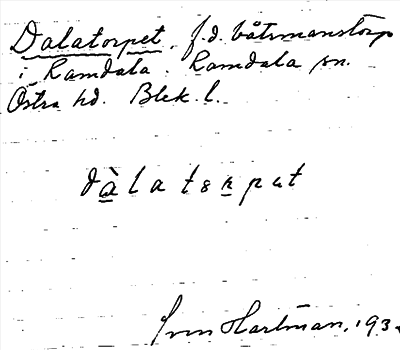 Dalatorpet, f.d. båtsmanstorp
i Ramdala. Ramdala sn.
Östra hd. Blek. l.
Hartman, 193